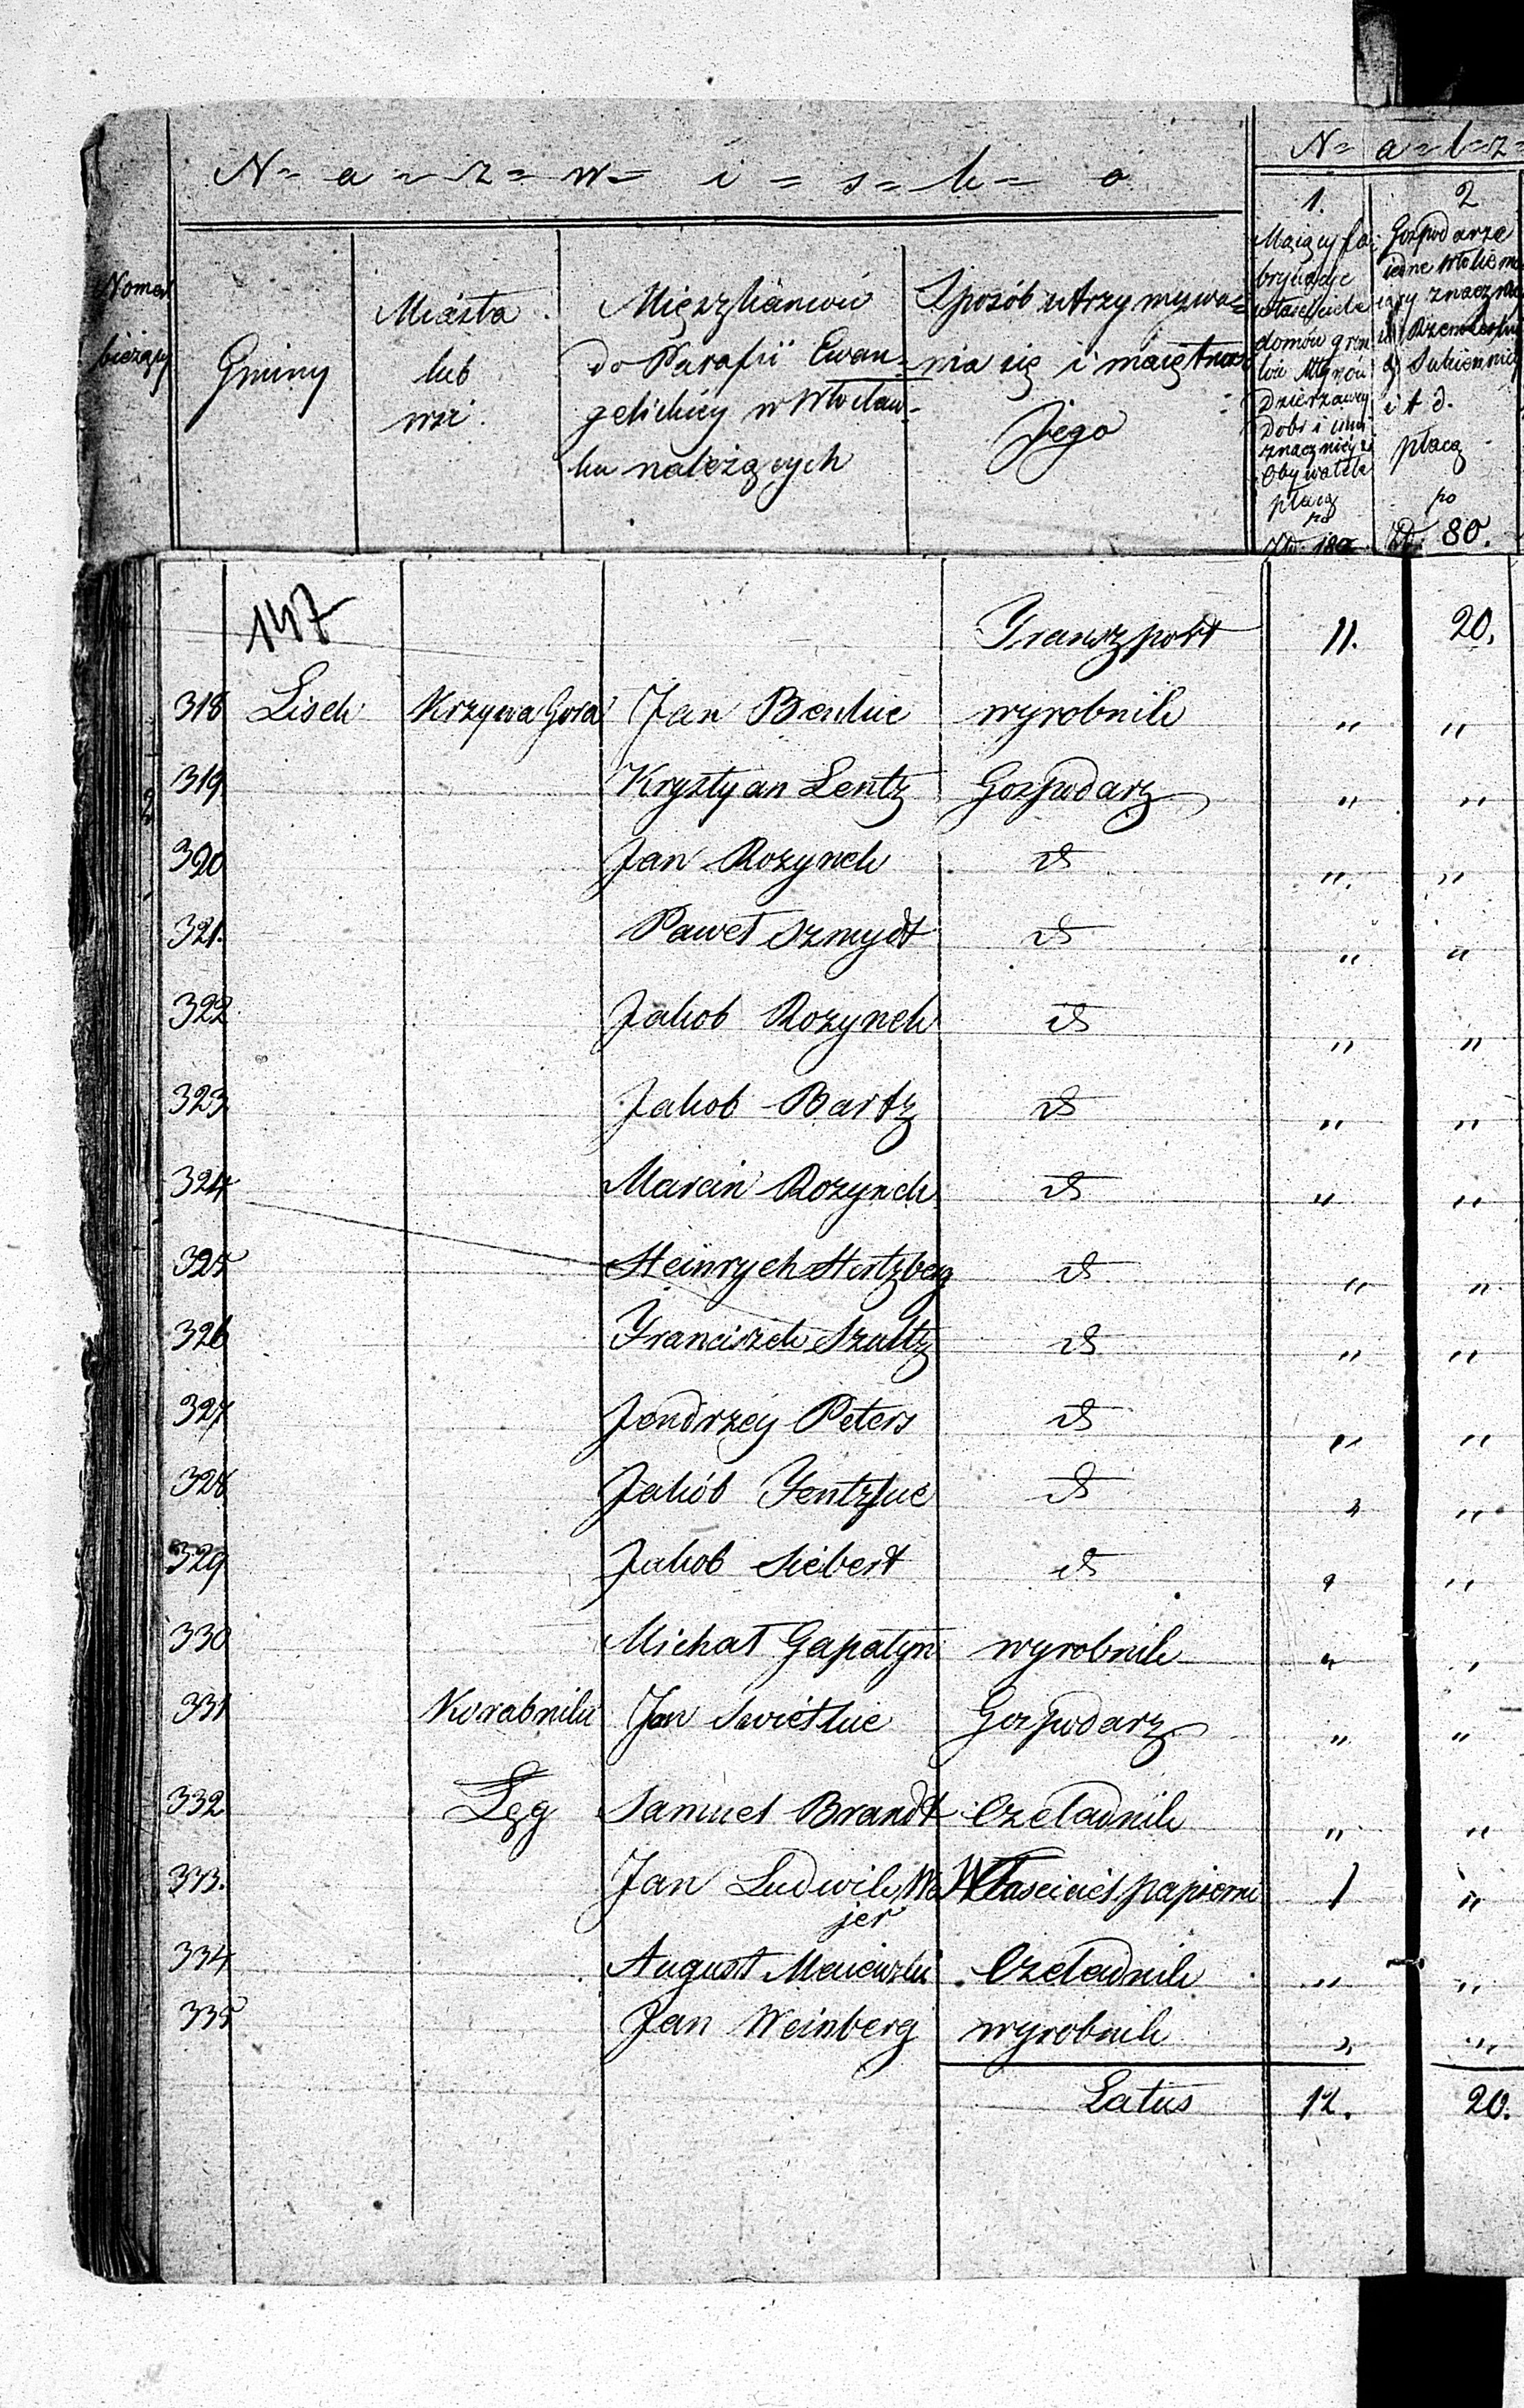 N = a = z = w = i = s = k = o
N = a = l = e = z =
Numer bieżący
Gminy
Miasta
lub
wsi
Mięszkancow
do Parafii Ewan-
gelickiey w Włocław-
ku należących
Sposób utrzymywa-
nia się i maiętnosc
Jego
1.
Maiący fa-
brykacje
właściciele
domów grun
tów Młynów
Dzierzawcy
Dobr i inni
znacznieysi
Obywatele
płacą
po
Zł. 180
2
Gospodarze
płacą
po
Zł. 80.
147
Transzport 11. 20.
318 Lisek Krzywa Gora Jan Benkie wyrobnik " "
319 Krysztyan Lentz Gospodarz " "
320 Jan Rozynek dt " "
321. Paweł Szmydt dt " "
322 Jakob Rozynek dt " "
323 Jakob Bartz dt " "
324 Marcin Rozynek dt " "
325 Heinrych Hertzberg dt " "
326 Franciszek Szultz dt " "
327 Jendrzey Peters dt " "
328 Jakób Jentzkie dt " "
329 Jakob Siebert dt " "
330 Michał Gapatyn wyrobnik " "
331 Korabniki Jan Swietkie Gospodarz " "
332 Łęg Samuel Brandt Czeladnik " "
333. Jan Ludwik We Własciciel papierni 1 "
jer
334 August Maiewski Czeladnik " "
335 Jan Weinberg wyrobnik " "
Latus 12. 20.